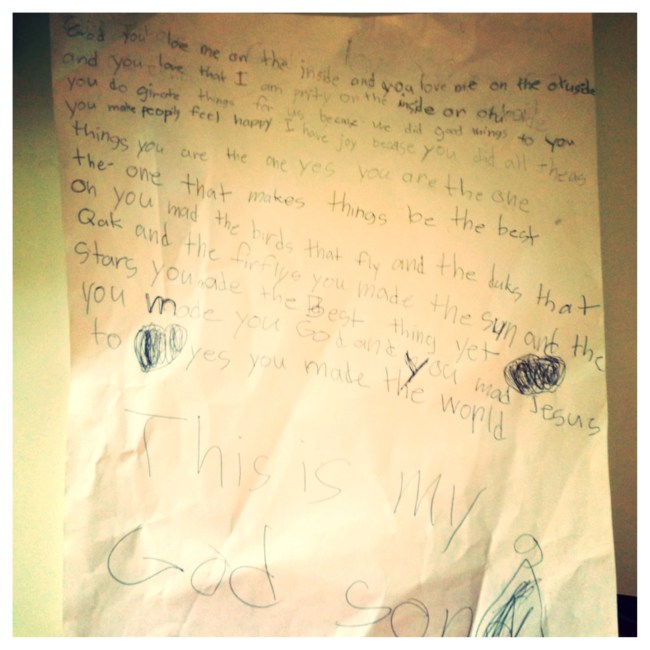 God you love me on the inside and you love me on the otusede
and you love that I am prity on the inside or
you do girate things for us becaise we did good things to you
you make peopily feel happy I have joy becaise you did all theas
things you are the one yes you are the one
the one that makes things be the best
Oh you mad the birds that fly and the duks that
Qak and the firflys you made the sun and the
stars you made the Best thing yet
you made you God and you mad Jesus
to yes you made the world
This is my
God song